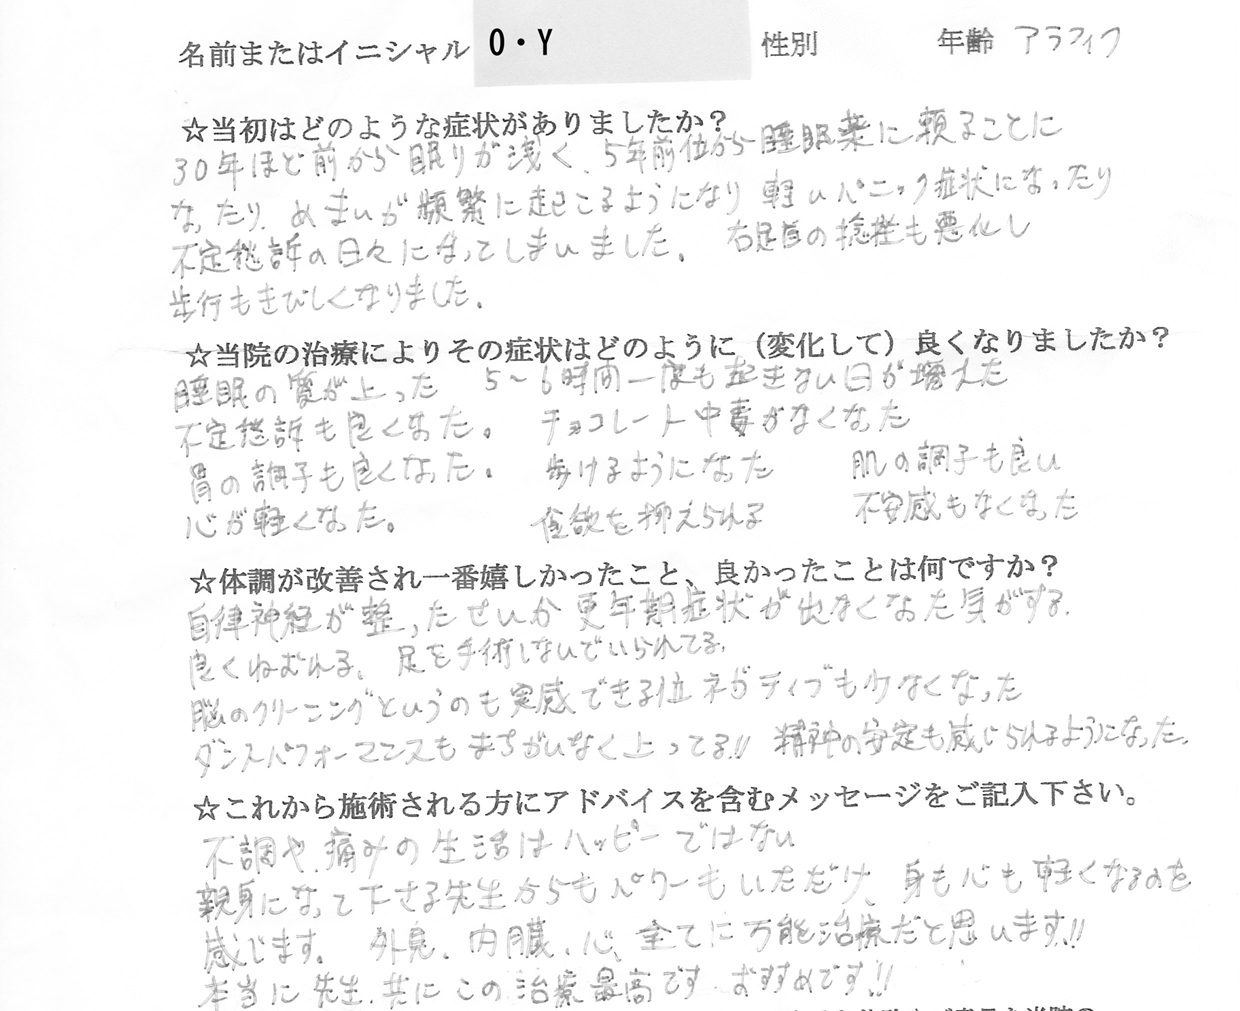 名前またはイニシャル O・Y 性別 年齢 アラフィフ
☆当初はどのような症状がありましたか？
30年ほど前から眠りが浅く、5年前位から睡眠薬に頼ることに
なったり、めまいが頻繁に起こるようになり 軽いパニック症状になったり
不定愁訴の日々になってしまいました。 右足首の捻挫も悪化し
歩行もきびしくなりました。
☆当院の治療によりその症状はどのように（変化して）良くなりましたか？
睡眠の質が上った 5～6時間一度も起きない日が増えた
不定愁訴も良くなった。 チョコレート中毒がなくなった
胃の調子も良くなった。 歩けるようになった 肌の調子も良い
心が軽くなった。 食欲を抑えられる 不安感もなくなった
☆体調が改善され一番嬉しかったこと、良かったことは何ですか？
自律神経が整ったせいか 更年期症状が出なくなった気がする。
良くねむれる。 足を手術しないでいられてる。
脳のクリーニングというのも実感できる位ネガティブも少なくなった
ダンスパフォーマンスもまちがいなく上ってる!! 精神の安定も感じられるようになった。
☆これから施術される方にアドバイスを含むメッセージをご記入下さい。
不調や痛みの生活はハッピーではない
親身になって下さる先生からもパワーもいただけ、身も心も軽くなるのを
感じます。 外見、内臓、心、全てに万能治療だと思います!!
本当に先生、共にこの治療最高です おすすめです!!